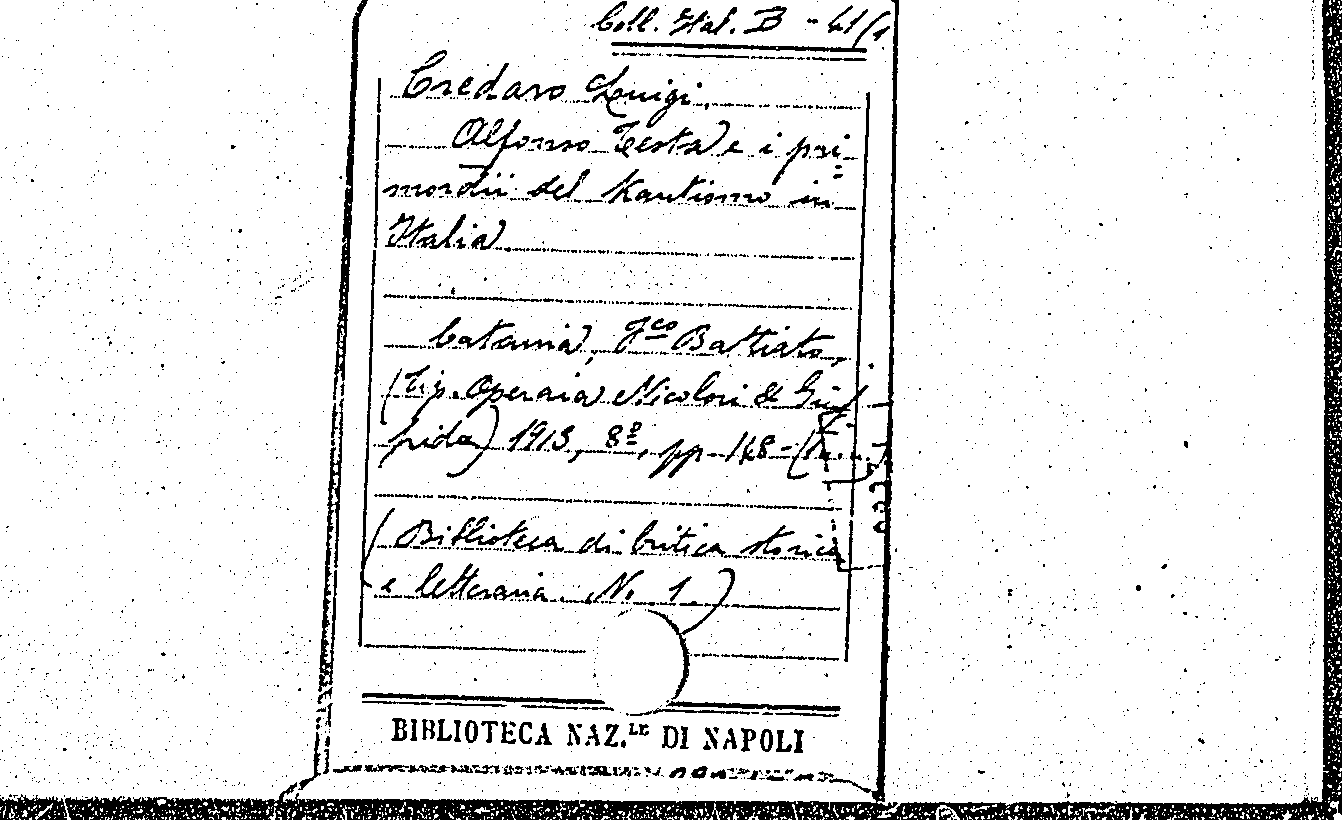 Coll. Ital. B - 41/1
Credaro Luigi.
Alfonso Testa e i pri=
mordii del Kantismo in
Italia.
Catania, F.co Battiato,
(Tip. Operaia Nicolosi & Giuf-
frida) 1913, 8º, pp. 168 -
(Biblioteca di Critica storica
e letteraria. N. 1.)
BIBLIOTECA NAZ.LE DI NAPOLI